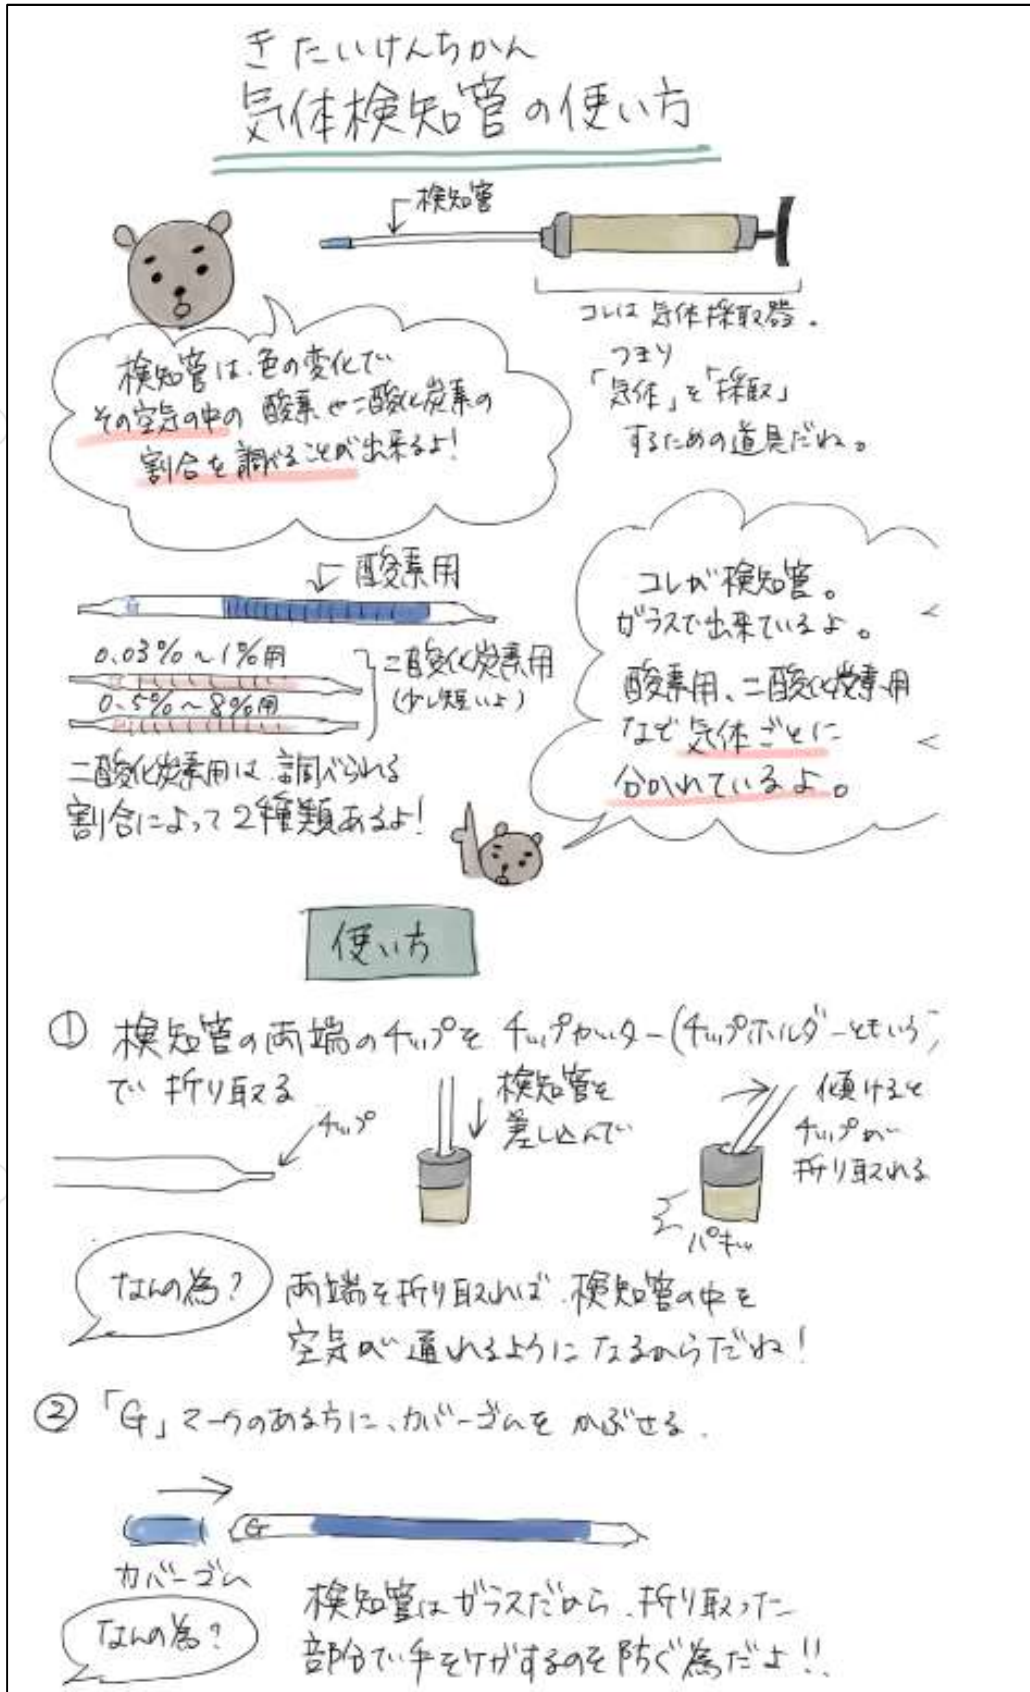 きたいけんちかん
気体検知管の使い方
検知管
コレは気体採取器。
つまり
「気体」を「採取」
するための道具だね。
検知管は、色の変化で
その空気の中の酸素や二酸化炭素の
割合を調べることが出来るよ!
酸素用
0.03%〜1%用
0.5%〜8%用
二酸化炭素用
(少し短いよ)
二酸化炭素用は、調べられる
割合によって2種類あるよ!
コレが検知管。
ガラスで出来ているよ。
酸素用、二酸化炭素用
など気体ごとに
分かれているよ。
使い方
① 検知管の両端のチップを チップカッター(チップホルダーともいう)
で折り取る
チップ
検知管を
差し込んで
傾けると
チップが
折り取れる
パキッ
なんの為?
両端を折り取れば、検知管の中を
空気が通れるようになるからだね!
② 「G」マークのある方に、カバーゴムをかぶせる.
G
カバーゴム
なんの為?
検知管はガラスだから、折り取った
部分で手をケガするのを防ぐ為だよ!!